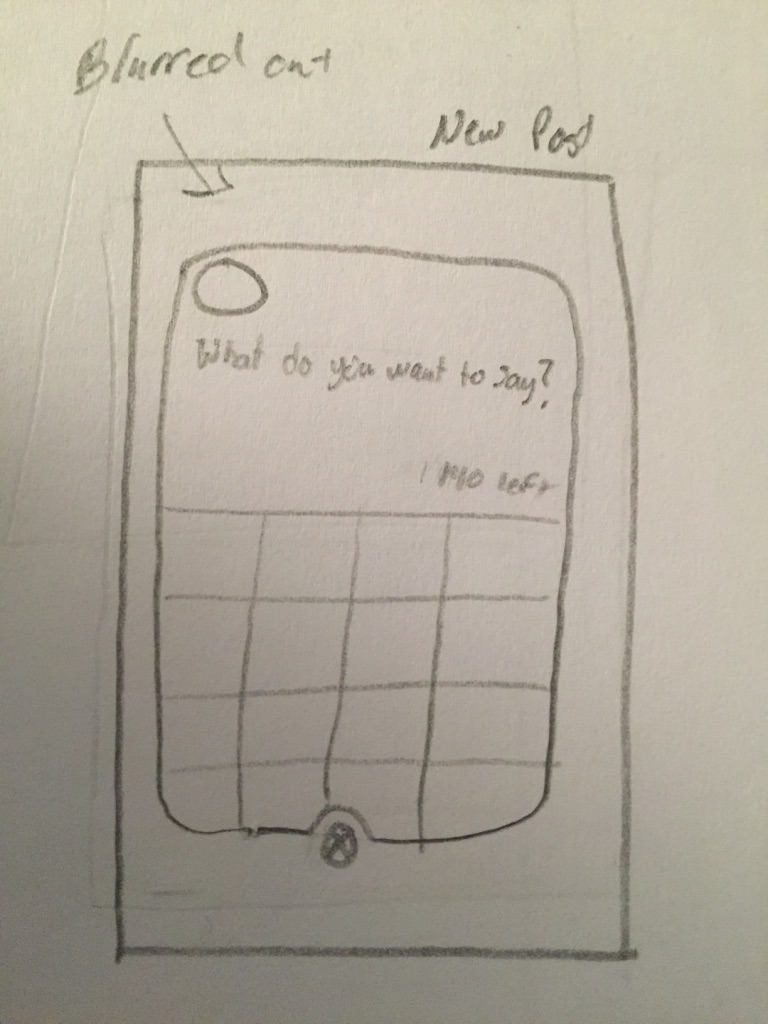 Blurred out
New Post
What do you want to say?
140 left